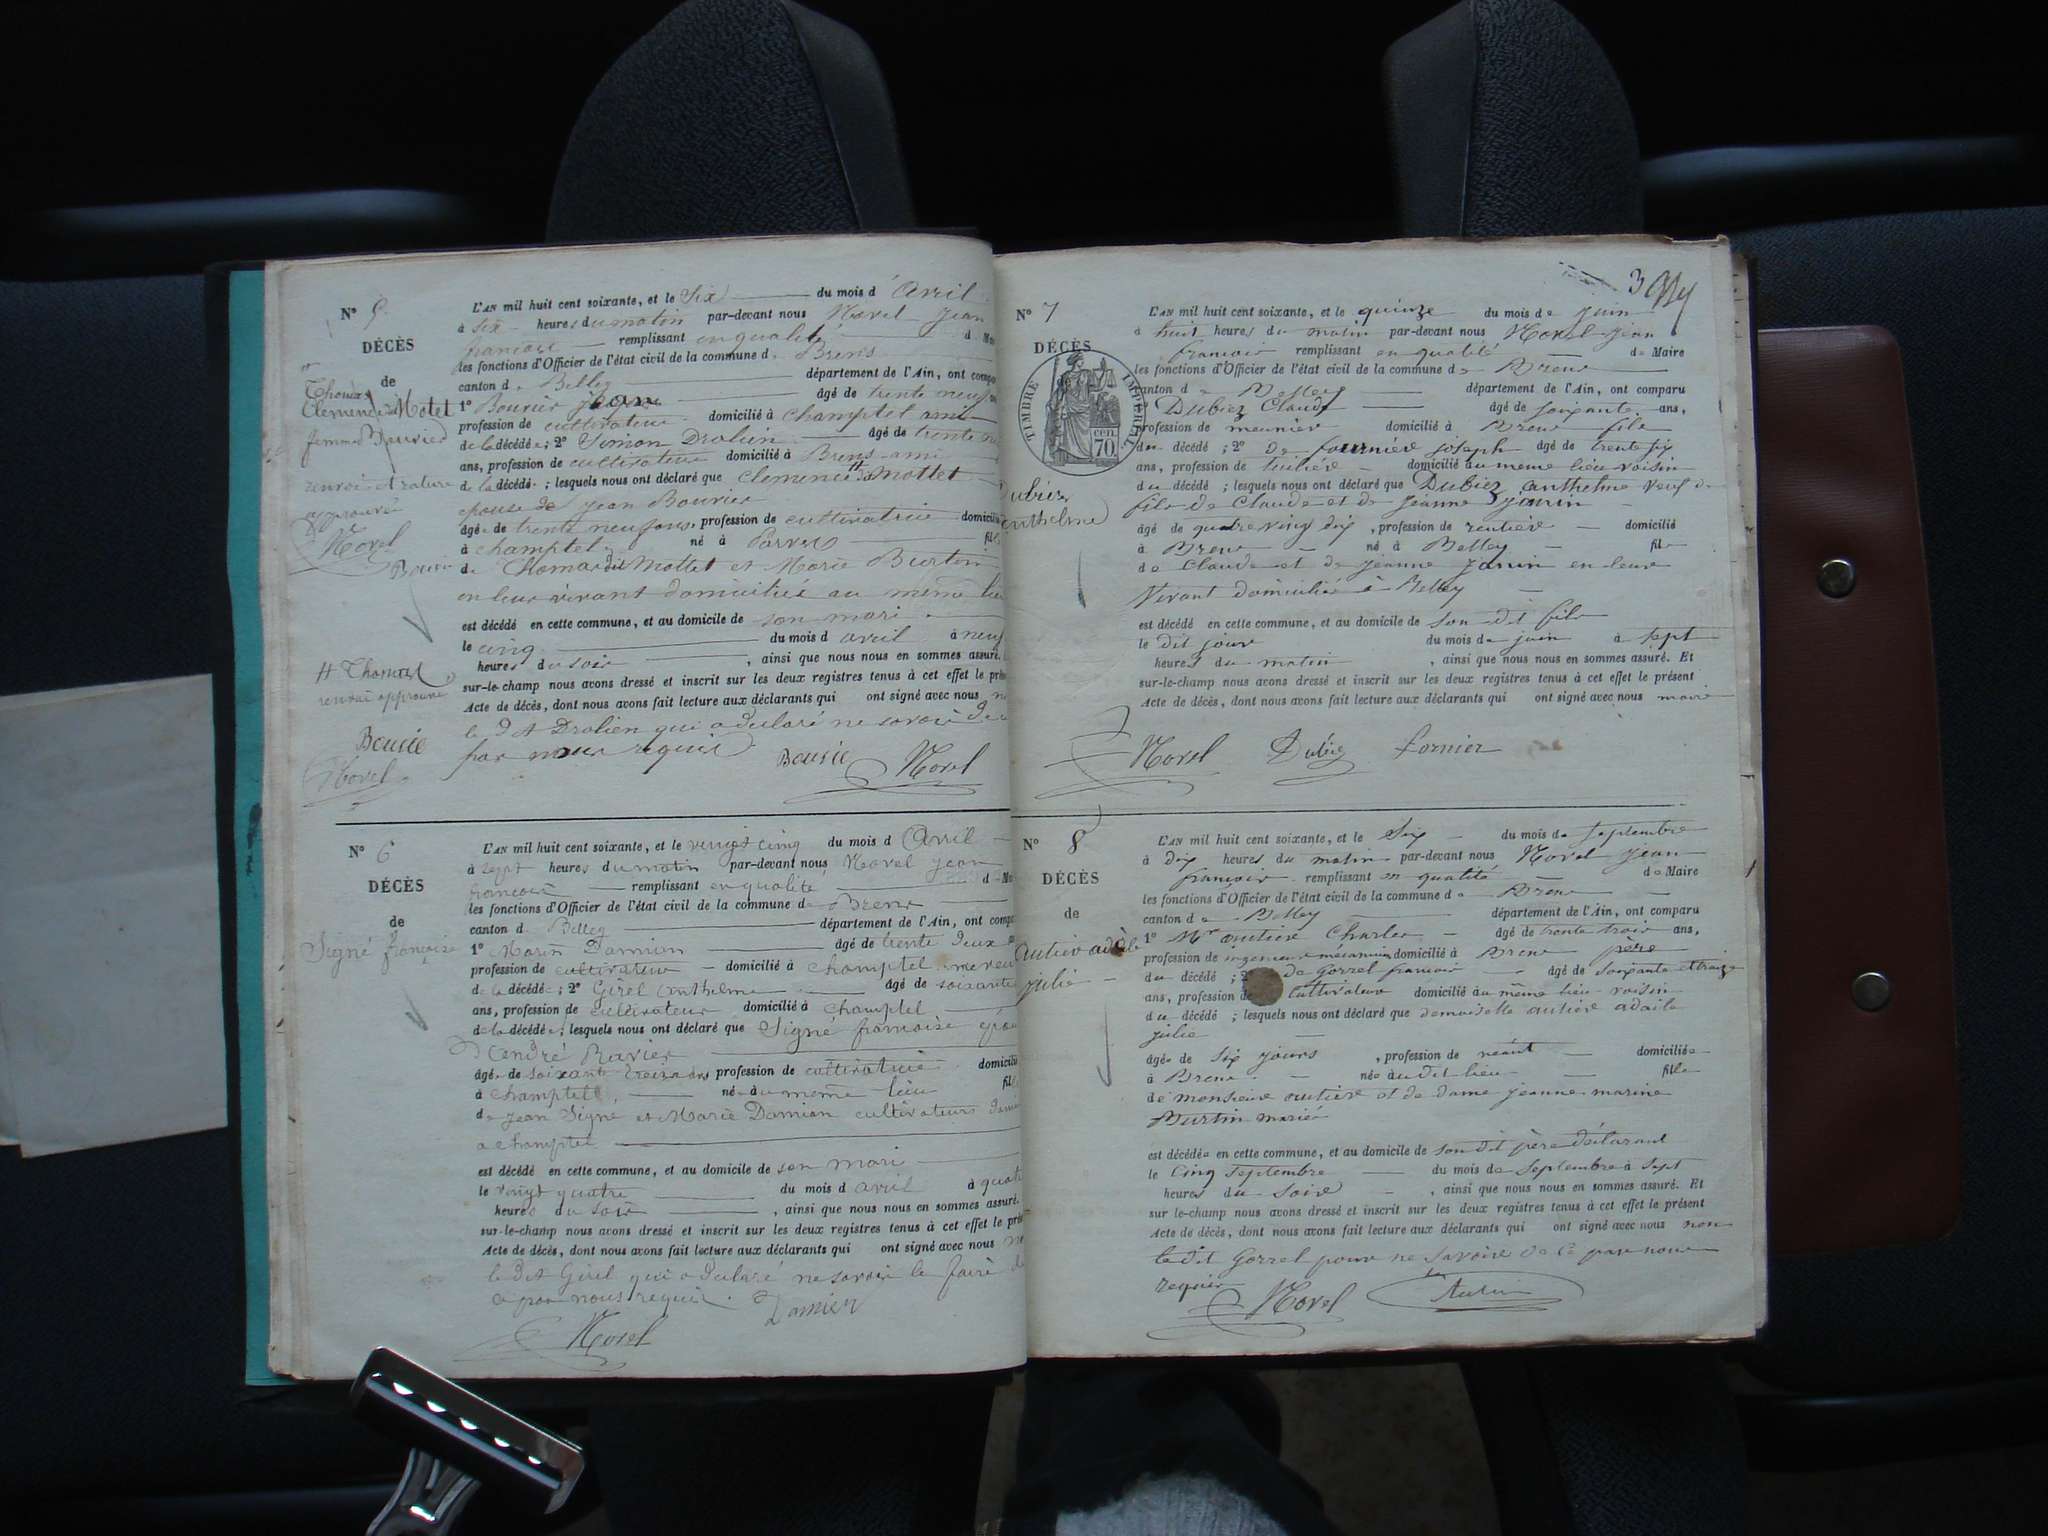 N° 5
DÉCÈS
de
Thomas
Clemence Motet
femme Bouvier
renvoi et rature
approuvé
Morel
L'AN mil huit cent soixante, et le Six du mois d'Avril
à six heures du matin par-devant nous Morel Jean
françois remplissant en qualité d
les fonctions d'Officier de l'état civil de la commune de Brens
canton de Belley département de l'Ain, ont
1° Bouvier Jean âgé de trente neuf
profession de cultivateur domicilié à Champtel ami
de la décédée; 2° Simon Drolien âgé de trente
ans, profession de cultivateur domicilié à Brens ami
de la décédée; lesquels nous ont déclaré que Clemence Mottet
epouse de Jean Bouvier
âgée de trente neuf ans, profession de cultivatrice
à Champtel, né à Parves
de Thomas dit Mottet et Marie Burtin
en leur vivant domiciliés au même lieu
est décédé en cette commune, et au domicile de son mari
le cinq du mois d avril à neuf
heures du soir, ainsi que nous nous en sommes assuré.
sur-le-champ nous avons dressé et inscrit sur les deux registres tenus à cet effet le
Acte de décès, dont nous avons fait lecture aux déclarants qui ont signé avec nous
le dit Drolien qui a declaré ne savoir
par nous requis
Bousie Morel
# Thomas
renvoi approuvé
Bousie
Morel
N° 6
DÉCÈS
de
Signé françoise
L'AN mil huit cent soixante, et le vingt cinq du mois d Avril
à sept heures du matin par-devant nous Morel Jean
françois remplissant en qualité d
les fonctions d'Officier de l'état civil de la commune de Brens
canton de Belley département de l'Ain, ont
1° Marin Damian âgé de trente deux
profession de cultivateur domicilié à Champtel neveu
de la décédée; 2° Girel Anthelme âgé de soixante
ans, profession de cultivateur domicilié à Champtel
de la décédée; lesquels nous ont déclaré que Signé francoise
d'André Ravier
âgée de soixante treize ans profession de cultivatrice
à Champtel, née au même lieu
de Jean Signé et Marie Damian cultivateurs
a champtel
est décédé en cette commune, et au domicile de son mari
le vingt quatre du mois d avril à
heures du soir, ainsi que nous nous en sommes assuré.
sur-le-champ nous avons dressé et inscrit sur les deux registres tenus à cet effet le
Acte de décès, dont nous avons fait lecture aux déclarants qui ont signé avec nous
le dit Girel qui a declaré ne savoir le faire
ce par nous requis. Damien
Morel
3
N° 7
DÉCÈS
TIMBRE IMPÉRIAL
70 cen.
Dubiez
Anthelme
L'AN mil huit cent soixante, et le quinze du mois de juin
à huit heures du matin par-devant nous Morel Jean
françois remplissant en qualité de Maire
les fonctions d'Officier de l'état civil de la commune de Brens
canton de Belley département de l'Ain, ont comparu
Dubiez Claude âgé de soixante ans,
profession de meunier domicilié à Brens fils
du décédé; 2° de fournier joseph âgé de trente six
ans, profession de tuilier domicilié au même lieu voisin
du décédé; lesquels nous ont déclaré que Dubiez anthelme veuf de
fils de Claude et de jeanne janin
âgé de quatre ving dix, profession de rentier domicilié
à Brens né à Belley fils
de Claude et de jeanne janin en leur
Vivant domiciliés à Belley
est décédé en cette commune, et au domicile de son dit fils
le dit jour du mois de juin à sept
heures du matin, ainsi que nous nous en sommes assuré. Et
sur-le-champ nous avons dressé et inscrit sur les deux registres tenus à cet effet le présent
Acte de décès, dont nous avons fait lecture aux déclarants qui ont signé avec nous maire
Morel Dubiez fornier
N° 8
DÉCÈS
de
autier adèle
julie
L'AN mil huit cent soixante, et le Six du mois de septembre
à dix heures du matin par-devant nous Morel Jean
françois remplissant en qualité de Maire
les fonctions d'Officier de l'état civil de la commune de Brens
canton de Belley département de l'Ain, ont comparu
1° Mr autier Charles âgé de trente trois ans,
profession de ingenieur mécanicien domicilié à Brens père
du décédé; 2° de Gorrel francois âgé de soixante et treize
ans, profession de cultivateur domicilié au même lieu voisin
du décédé; lesquels nous ont déclaré que demoiselle autier adaile
julie
âgée de six jours, profession de néant domiciliée
à Brens née au dit lieu fille
de monsieur autier et de dame jeanne marine
Burtin mariés
est décédée en cette commune, et au domicile de son dit père déclarant
le Cinq Septembre du mois de Septembre à sept
heures du soire, ainsi que nous nous en sommes assuré. Et
sur-le-champ nous avons dressé et inscrit sur les deux registres tenus à cet effet le présent
Acte de décès, dont nous avons fait lecture aux déclarants qui ont signé avec nous non
le dit Gorrel pour ne savoire de ce par nous
requis
Morel Autier